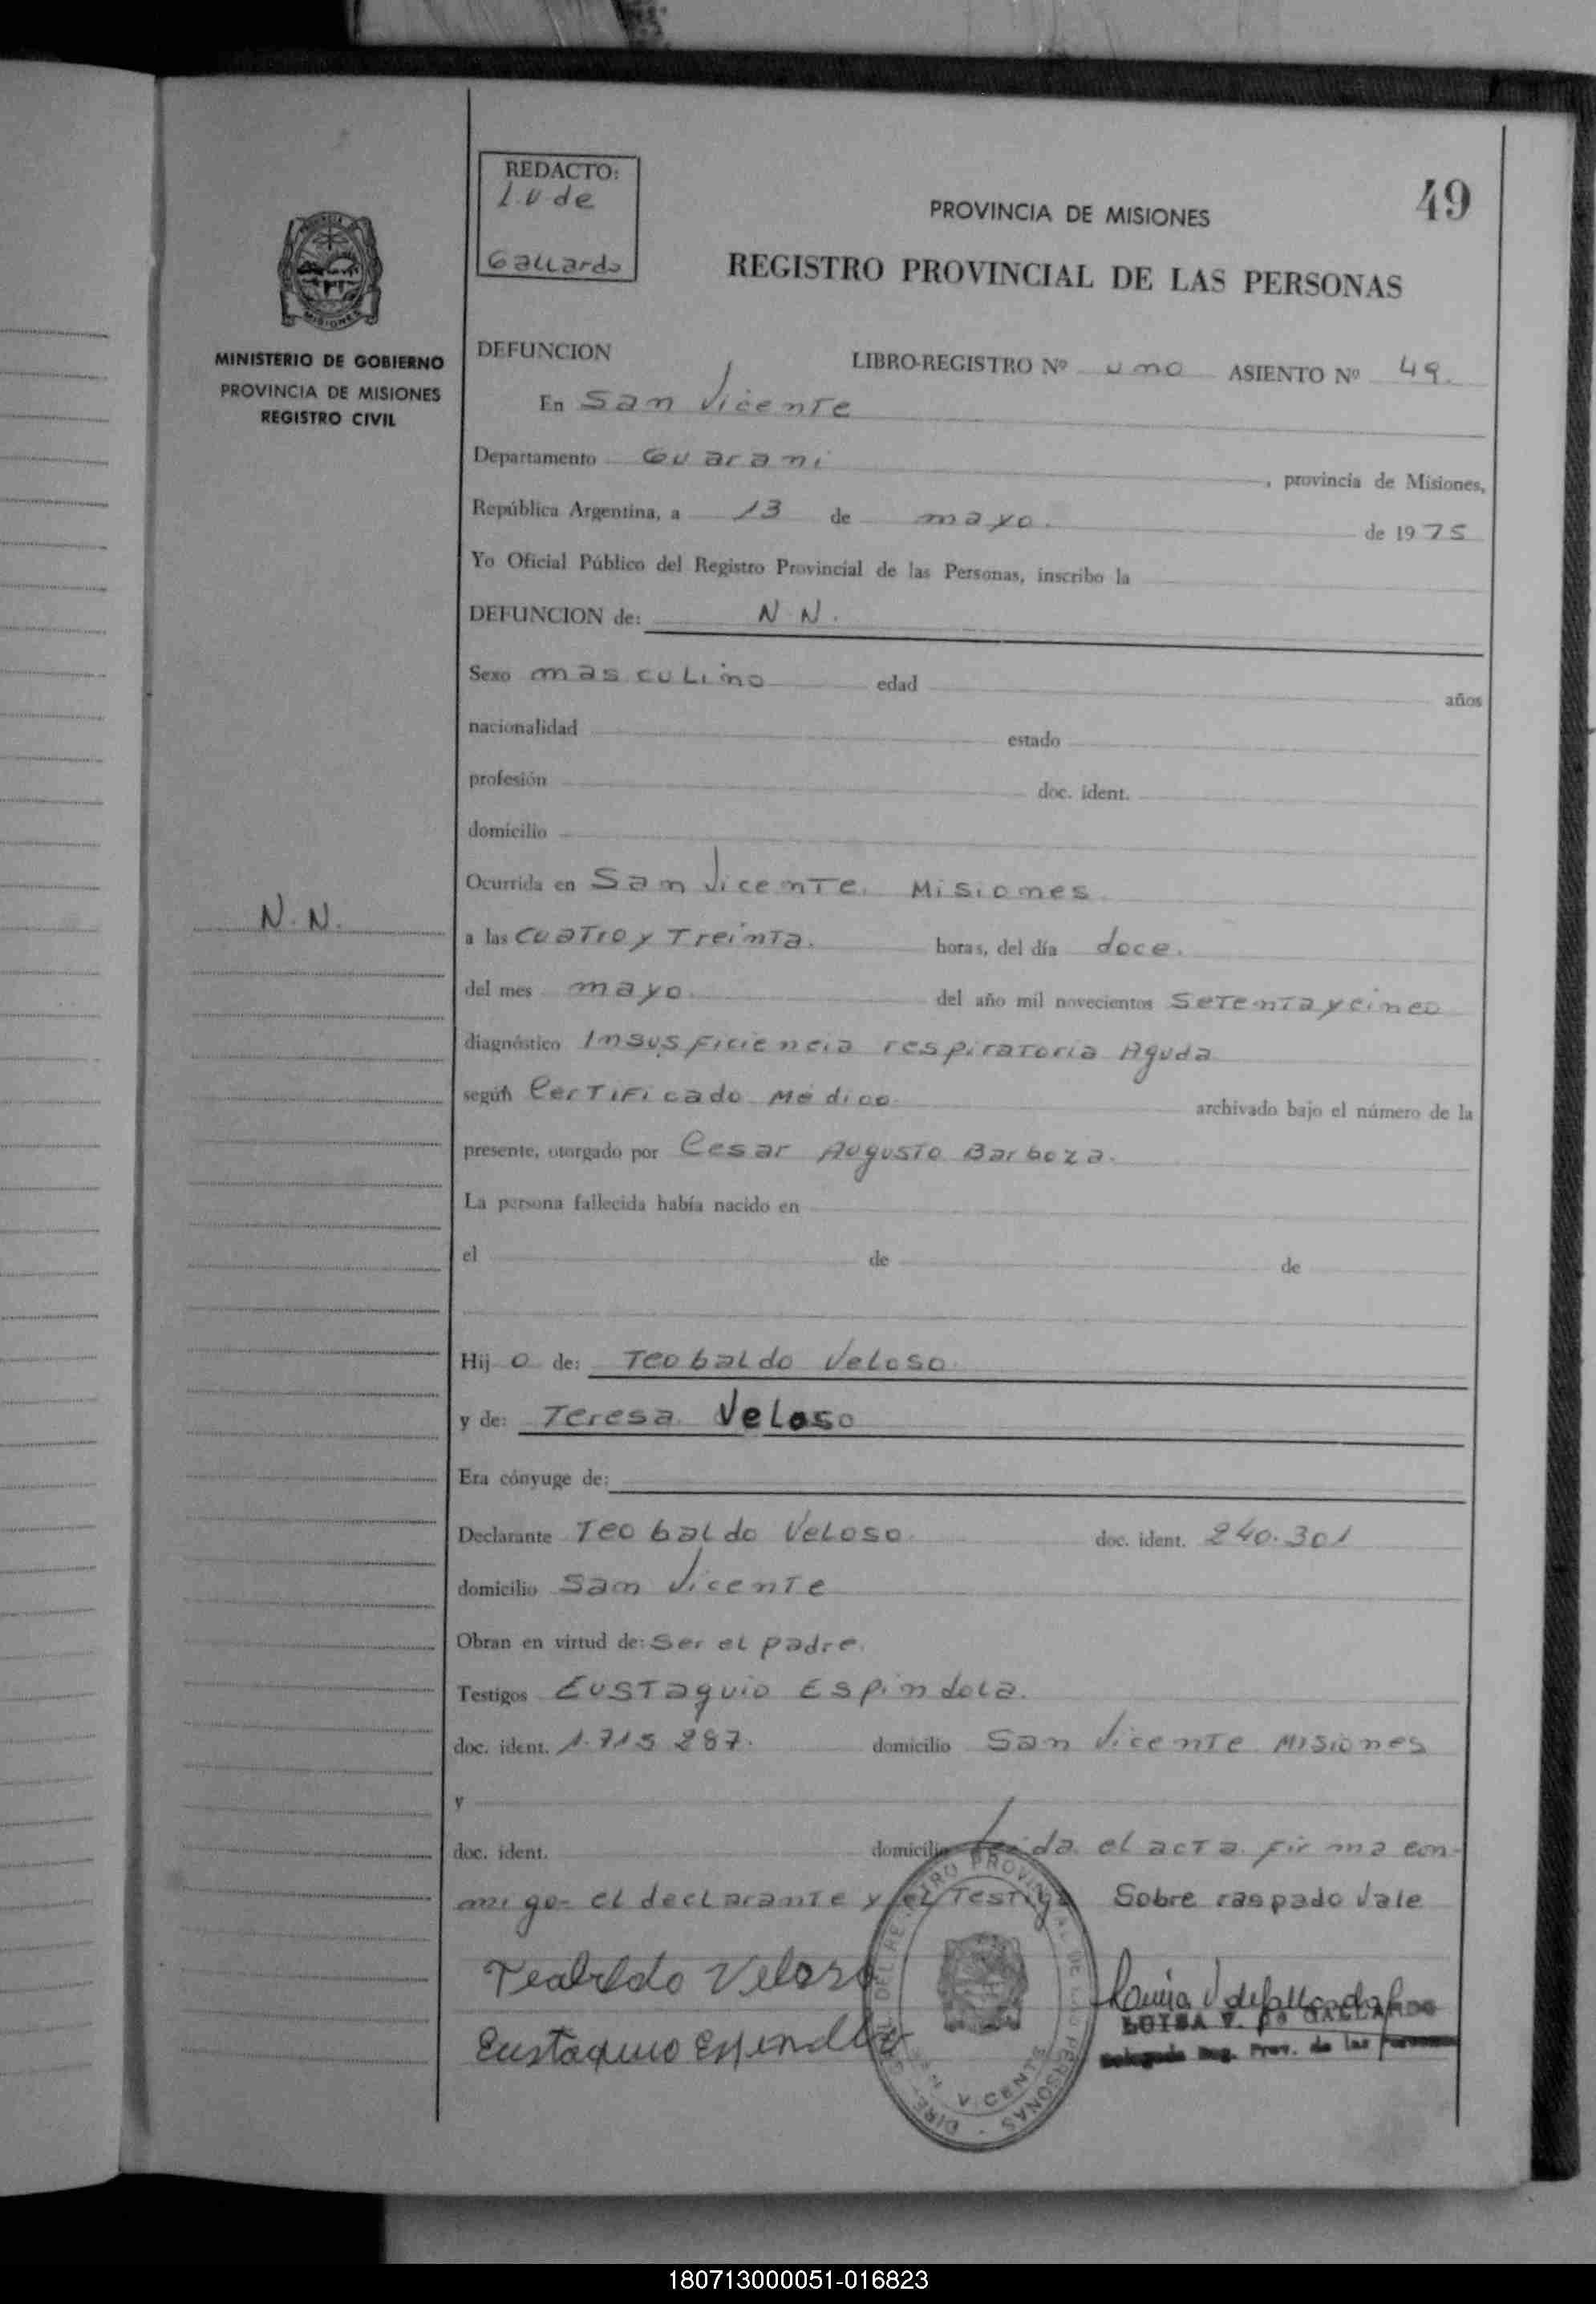 REDACTO:
L.V de
Gallardo
49
PROVINCIA DE MISIONES
REGISTRO PROVINCIAL DE LAS PERSONAS
MISIONES
MINISTERIO DE GOBIERNO
PROVINCIA DE MISIONES
REGISTRO CIVIL
DEFUNCION LIBRO-REGISTRO Nº uno ASIENTO Nº 49.
En San Vicente
Departamento Guarani, provincia de Misiones,
República Argentina, a 13 de mayo. de 1975
Yo Oficial Público del Registro Provincial de las Personas, inscribo la
DEFUNCION de: N N.
Sexo masculino edad años
nacionalidad estado
profesión doc. ident.
domicilio
Ocurrida en San Vicente. Misiones
N. N.
a las cuatro y Treinta. horas, del día doce.
del mes mayo. del año mil novecientos Setenta y cinco
diagnóstico Insuficiencia respiratoria Aguda
según Certificado Médico archivado bajo el número de la
presente, otorgado por Cesar Augusto Barboza.
La persona fallecida había nacido en
el de de
Hijo de: Teobaldo Veloso.
y de: Teresa Veloso
Era cónyuge de:
Declarante Teobaldo Veloso. doc. ident. 240.301
domicilio San Vicente
Obran en virtud de: Ser el padre.
Testigos Eustaquio Espindola.
doc. ident. 1.715 287. domicilio San Vicente Misiones
y
doc. ident. domicilio Leida el acta firma con-
migo el declarante y el Testigo Sobre raspado Vale
Teobaldo Veloso
Eustaquio Espindola
LUISA V. DE GALLARDO
Delegada Reg. Prov. de las Personas
180713000051-016823